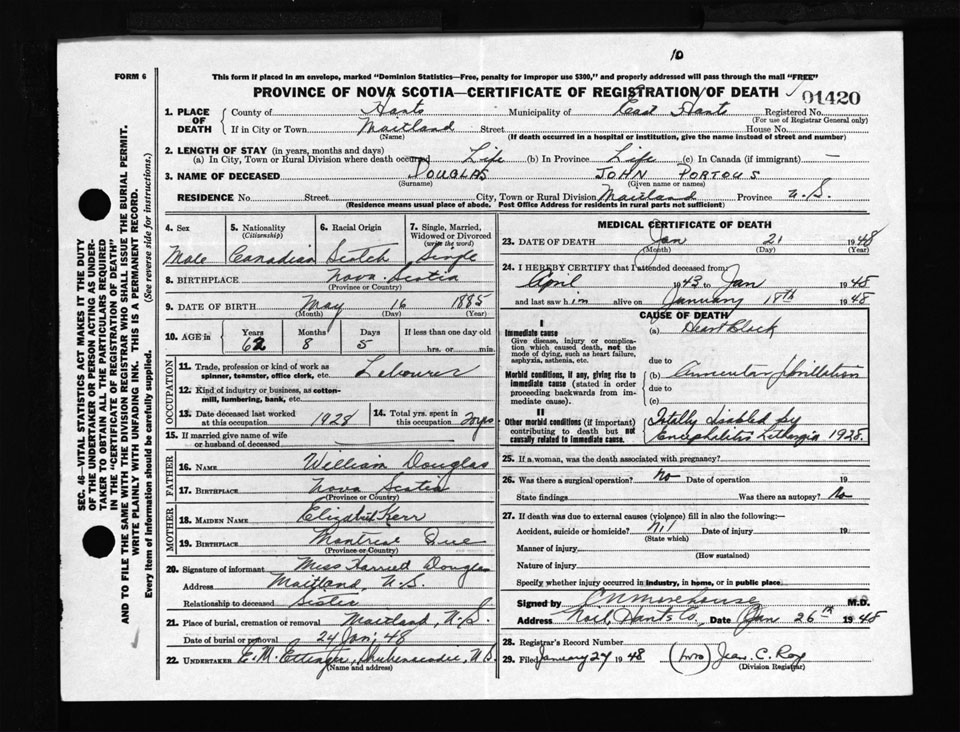 10
FORM 6
This form if placed in an envelope, marked "Dominion Statistics—Free, penalty for improper use $300," and properly addressed will pass through the mail "FREE"
PROVINCE OF NOVA SCOTIA—CERTIFICATE OF REGISTRATION OF DEATH
01420
1. PLACE OF DEATH County of Hants Municipality of East Hants Registered No.
(For use of Registrar General only)
If in City or Town Maitland Street House No.
(Name) (If death occurred in a hospital or institution, give the name instead of street and number)
2. LENGTH OF STAY (in years, months and days)
(a) In City, Town or Rural Division where death occurred Life (b) In Province Life (c) In Canada (if immigrant) —
3. NAME OF DECEASED DOUGLAS JOHN PORTOUS
(Surname) (Given name or names)
RESIDENCE No. Street City, Town or Rural Division Maitland Province N.S.
(Residence means usual place of abode. Post Office Address for residents in rural parts not sufficient)
4. Sex 5. Nationality 6. Racial Origin 7. Single, Married, Widowed or Divorced
(Citizenship) (write the word)
Male Canadian Scotch Single
8. BIRTHPLACE Nova Scotia
(Province or Country)
9. DATE OF BIRTH May 16 1885
(Month) (Day) (Year)
10. AGE in Years Months Days If less than one day old
62 8 5 hrs. or min.
OCCUPATION
11. Trade, profession or kind of work as spinner, teamster, office clerk, etc. Labourer
12. Kind of industry or business, as cotton-mill, lumbering, bank, etc.
13. Date deceased last worked at this occupation 1928 14. Total yrs. spent in this occupation 20yrs
15. If married give name of wife or husband of deceased
FATHER
16. NAME William Douglas
17. BIRTHPLACE Nova Scotia
(Province or Country)
MOTHER
18. MAIDEN NAME Elizabeth Kerr
19. BIRTHPLACE Montreal Que
(Province or Country)
20. Signature of informant Miss Harriet Douglas
Address Maitland, N.S.
Relationship to deceased Sister
21. Place of burial, cremation or removal Maitland, N.S.
Date of burial or removal 24 Jan; 48
22. UNDERTAKER E. M. Ettinger, Shubenacadie, N.S.
(Name and address)
MEDICAL CERTIFICATE OF DEATH
23. DATE OF DEATH Jan 21 1948
(Month) (Day) (Year)
24. I HEREBY CERTIFY that I attended deceased from
April 1943 to Jan 1948
and last saw him alive on January 18th 1948
CAUSE OF DEATH
I
Immediate cause (a) Heart Block
Give disease, injury or complication which caused death, not the mode of dying, such as heart failure, asphyxia, asthenia, etc.
due to
Morbid conditions, if any, giving rise to immediate cause (stated in order proceeding backwards from immediate cause). (b) Auricular fibrillation
due to
(c)
II
Other morbid conditions (if important) contributing to death but not causally related to immediate cause.
Totally disabled by
Encephilitis Lethargia 1928.
25. If a woman, was the death associated with pregnancy?
26. Was there a surgical operation? No Date of operation 19
State findings Was there an autopsy? No
27. If death was due to external causes (violence) fill in also the following:—
Accident, suicide or homicide? Nil Date of injury 19
(State which)
Manner of injury
(How sustained)
Nature of injury
Specify whether injury occurred in industry, in home, or in public place.
Signed by C N Morehouse M.D.
Address Noel, Hants Co. Date Jan 26th 1948
28. Registrar's Record Number
29. Filed January 24 1948 (Mrs) Jean C. Roy
(Division Registrar)
SEC. 46—VITAL STATISTICS ACT MAKES IT THE DUTY
OF THE UNDERTAKER OR PERSON ACTING AS UNDER-
TAKER TO OBTAIN ALL THE PARTICULARS REQUIRED
IN THE "CERTIFICATE OF REGISTRATION OF DEATH"
AND TO FILE THE SAME WITH THE DIVISION REGISTRAR WHO SHALL ISSUE THE BURIAL PERMIT.
WRITE PLAINLY WITH UNFADING INK. THIS IS A PERMANENT RECORD.
Every item of information should be carefully supplied. (See reverse side for instructions.)